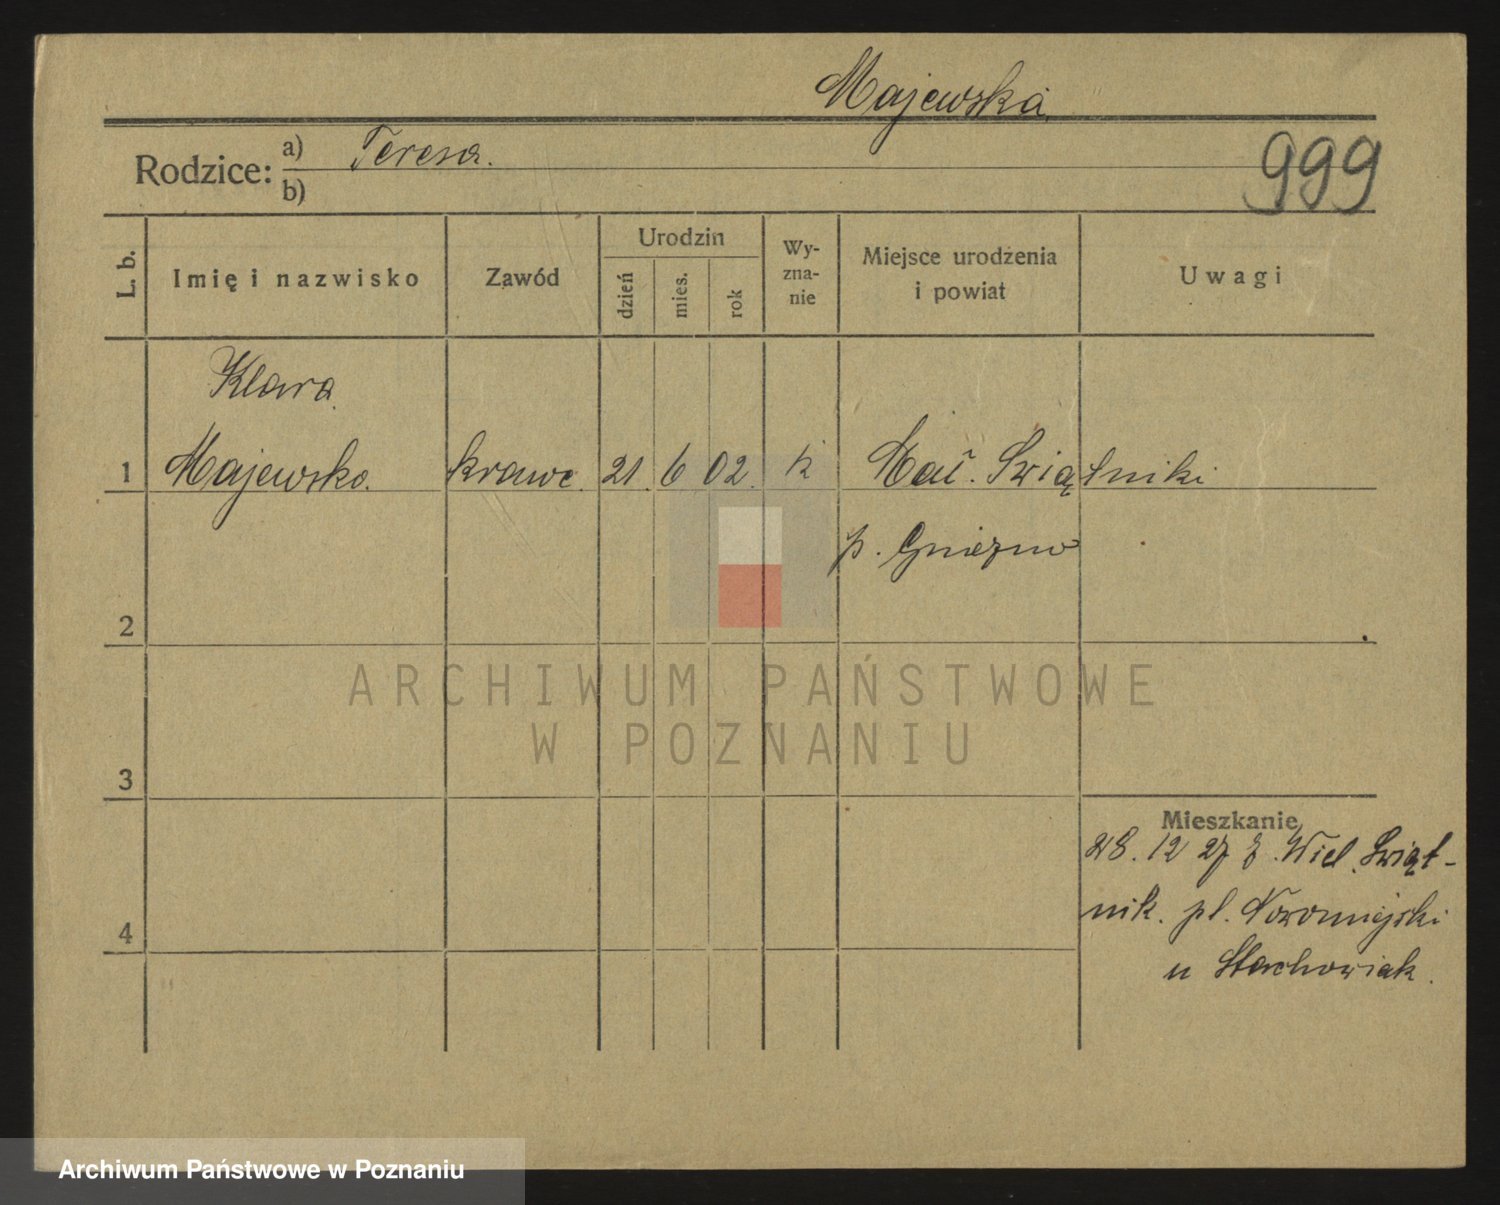 Majewska
Rodzice: a) Teresa.
b)
999
L. b.
Imię i nazwisko
Zawód
Urodzin
dzień
mies.
rok
Wy-
zna-
nie
Miejsce urodzenia
i powiat
Uwagi
Klara
1 Majewska. krawc. 21. 6 02. k Mał. Świątniki
p. Gniezno
2
3
4
Mieszkanie
28. 12 27 z. Wiel. Świąt-
nik. pl. Nowomiejski
u Stachowiak.
ARCHIWUM PAŃSTWOWE
W POZNANIU
Archiwum Państwowe w Poznaniu